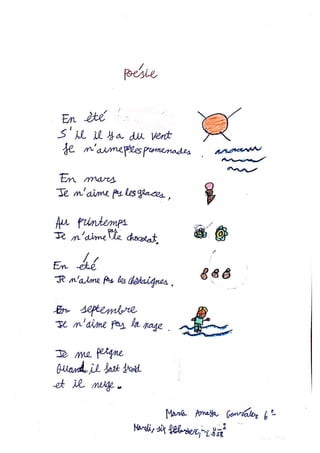 Poésie
En été
S'il il y a du vent
Je n'aime pas les promenades.
En mars
Je n'aime pas les glaces.
Au printemps
Je n'aime pas le chocolat.
En été
Je n'aime pas les châtaignes.
En septembre
Je n'aime pas la nage.
Je me peigne
Quand il fait froid
et il neige.
María Amaya González 6º
Mardi, six